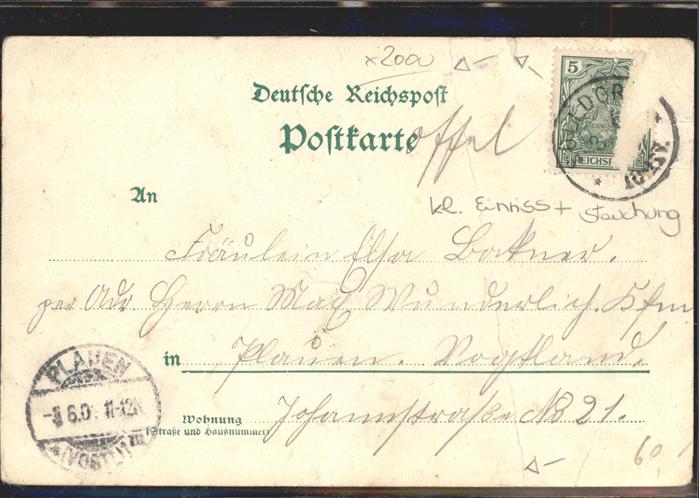 x2000
5
Deutsche Reichspost
Postkarte
offel
REICHSP
10-11V.
An
kl. Einriss + Stauchung
Fräulein Elsa
per Adr. Herrn Max Wunderlich. Kfm
in Plauen. Vogtland.
PLAUEN
6.0 11-12N
(VOGTL.)
Wohnung
(Straße und Hausnummer)
Johannstraße No 21.
60